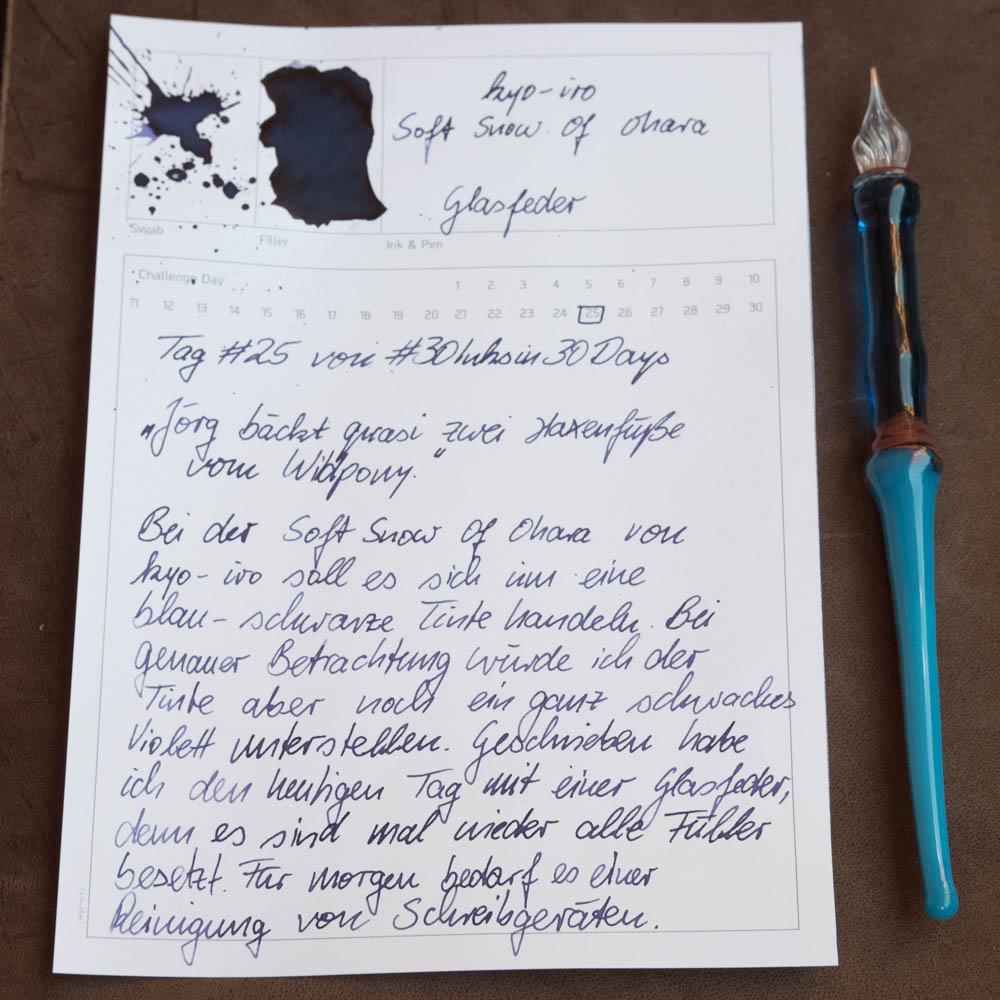 kyo-iro
Soft Snow Of Ohara
Glasfeder
Swab
Filler
Ink & Pen
Challenge Day
1 2 3 4 5 6 7 8 9 10
11 12 13 14 15 16 17 18 19 20 21 22 23 24 25 26 27 28 29 30
Tag #25 von #30Inksin30Days
„Jörg bäckt quasi zwei Haxenfüße
vom Wildpony."
Bei der Soft Snow Of Ohara von
kyo-iro soll es sich um eine
blau-schwarze Tinte handeln. Bei
genauer Betrachtung würde ich der
Tinte aber noch ein ganz schwaches
Violett unterstellen. Geschrieben habe
ich den heutigen Tag mit einer Glasfeder,
denn es sind mal wieder alle Füller
besetzt. Für morgen bedarf es einer
Reinigung von Schreibgeräten.